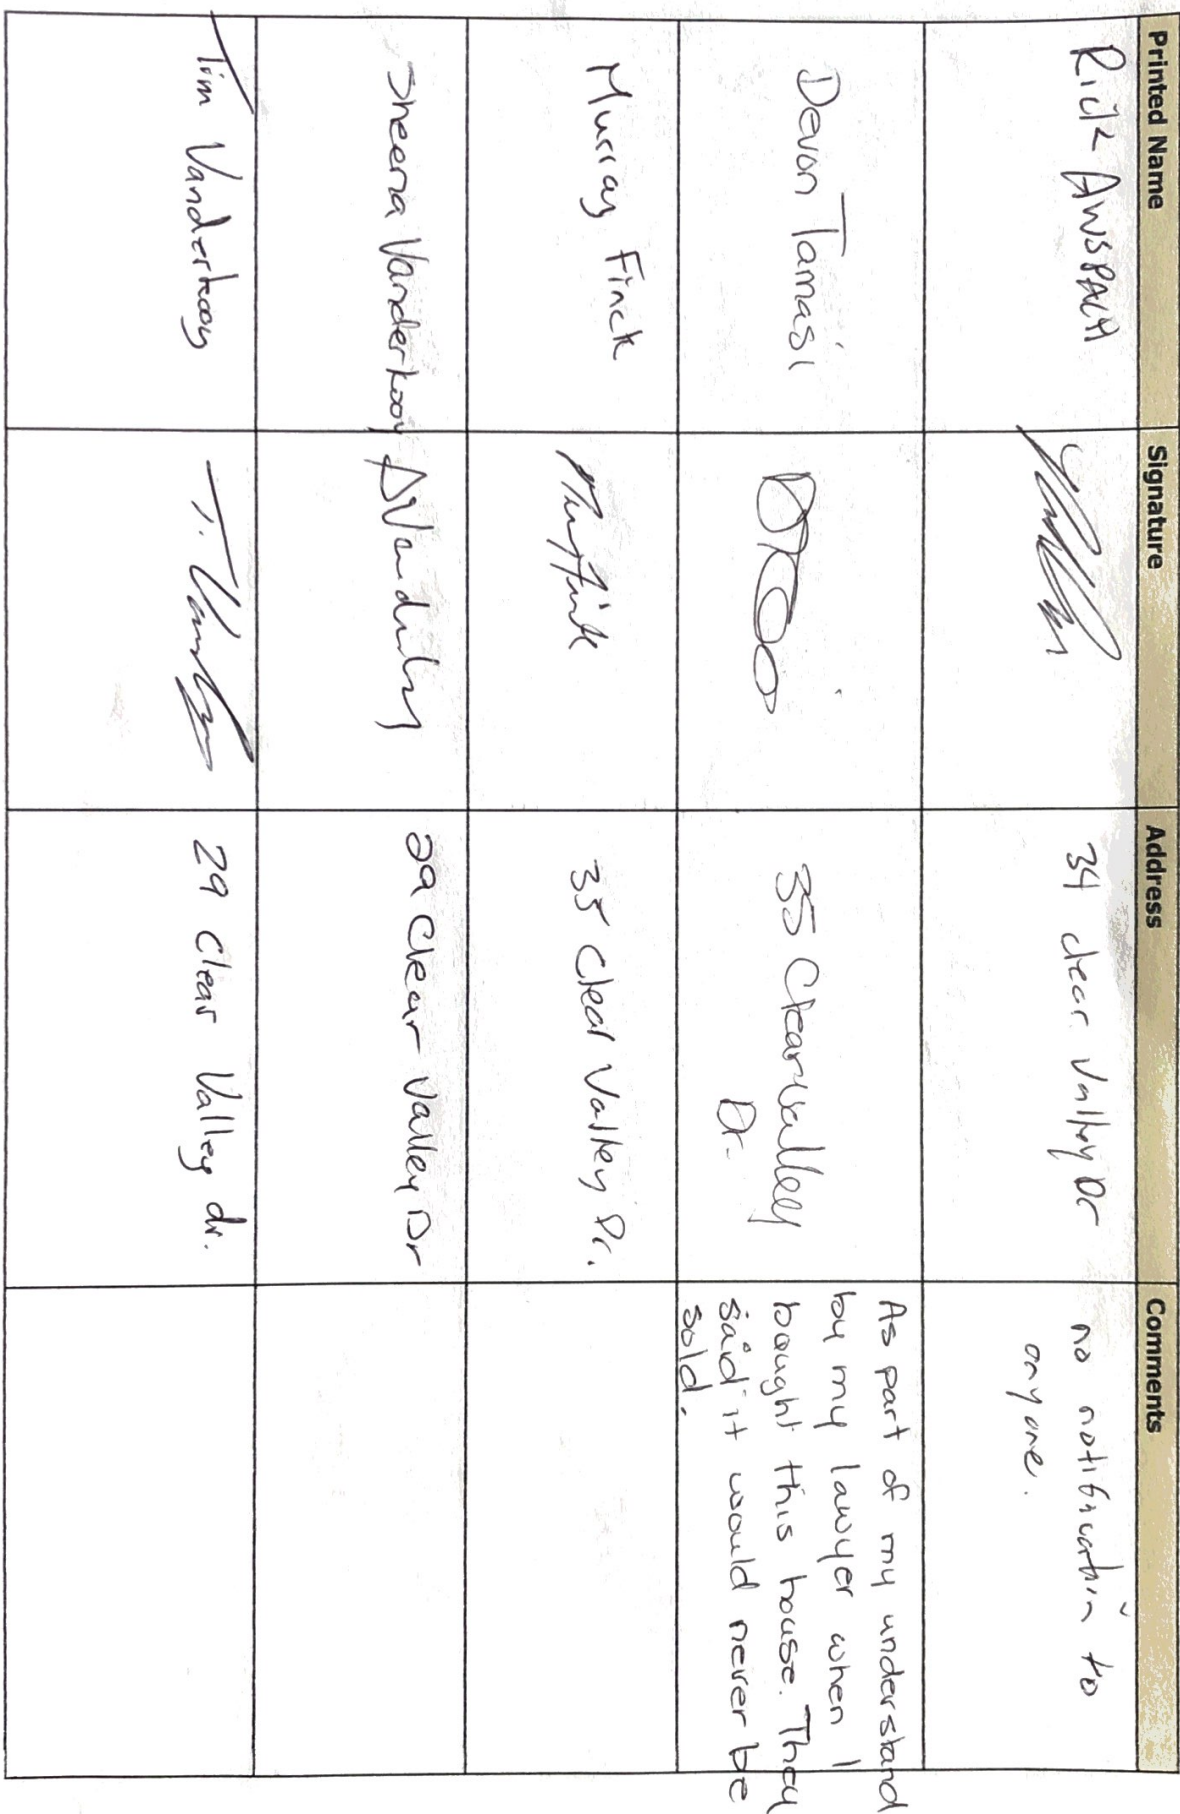 Printed Name Signature Address Comments
Rick AWSPACH 34 clear Valley Dr no notification to
anyone.
Devon Tamasi 35 Clearvalley
Dr.
As part of my understand
by my lawyer when I
bought this house. They
said it would never be
sold.
Murray Finck 35 Clear Valley Dr.
Sheena Vanderkooy 29 Clear Valley Dr
Tim Vanderkooy T. 29 Clear Valley dr.